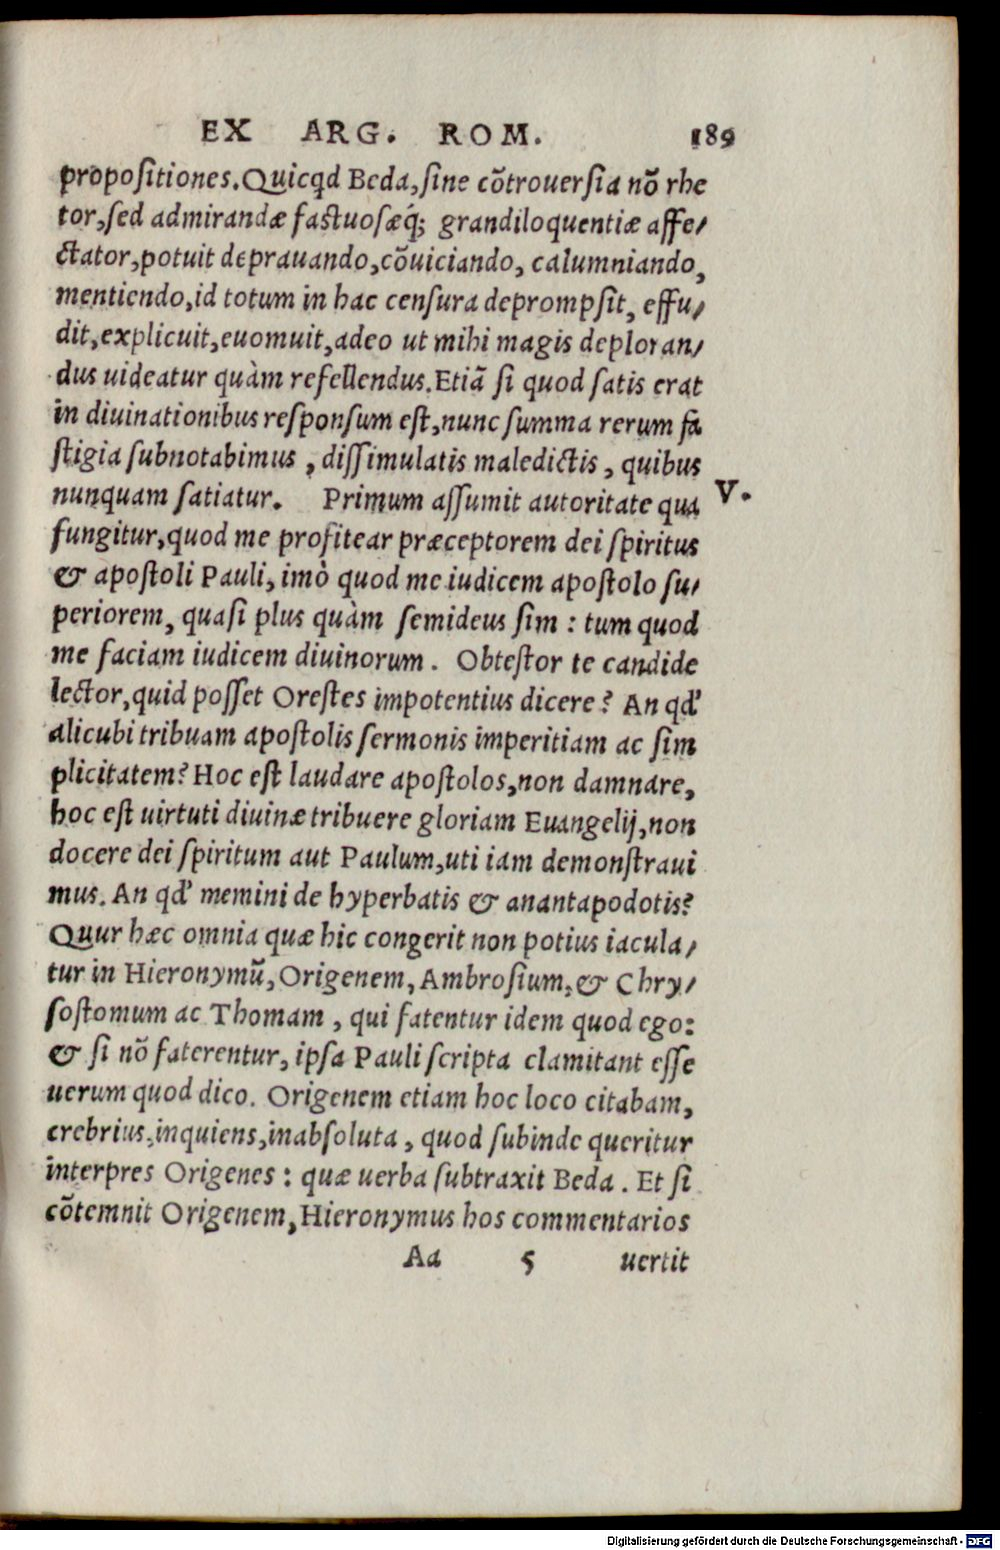 EX ARG. ROM. 189
propositiones. Quicqd Beda, sine cõtrouersia nõ rhe
tor, sed admirandæ fastuosæq́; grandiloquentiæ affe/
ctator, potuit deprauando, cõuiciando, calumniando,
mentiendo, id totum in hac censura deprompsit, effu/
dit, explicuit, euomuit, adeo ut mihi magis deploran/
dus uideatur quàm refellendus. Etiã si quod satis erat
in diuinationibus responsum est, nunc summa rerum fa
stigia subnotabimus, dissimulatis maledictis, quibus
nunquam satiatur. Primum assumit autoritate qua V.
fungitur, quod me profitear præceptorem dei spiritus
& apostoli Pauli, imò quod me iudicem apostolo su/
periorem, quasi plus quàm semideus sim: tum quod
me faciam iudicem diuinorum. Obtestor te candide
lector, quid posset Orestes impotentius dicere? An qd'
alicubi tribuam apostolis sermonis imperitiam ac sim
plicitatem? Hoc est laudare apostolos, non damnare,
hoc est uirtuti diuinæ tribuere gloriam Euangelij, non
docere dei spiritum aut Paulum, uti iam demonstraui
mus. An qd' memini de hyperbatis & anantapodotis?
Quur hæc omnia quæ hic congerit non potius iacula/
tur in Hieronymũ, Origenem, Ambrosium, & Chry/
sostomum ac Thomam, qui fatentur idem quod ego:
& si nõ faterentur, ipsa Pauli scripta clamitant esse
uerum quod dico. Origenem etiam hoc loco citabam,
crebrius, inquiens, inabsoluta, quod subinde queritur
interpres Origenes: quæ uerba subtraxit Beda. Et si
cõtemnit Origenem, Hieronymus hos commentarios
Aa 5 uertit
Digitalisierung gefördert durch die Deutsche Forschungsgemeinschaft - DFG